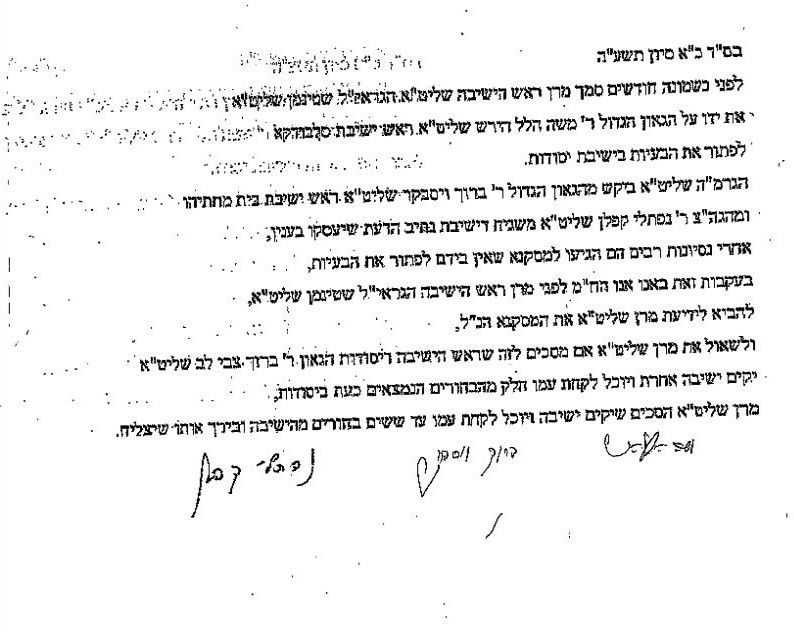 בס"ד כ"א סיון תשע"ה
לפני כשמונה חודשים סמך מרן ראש הישיבה שליט"א הגראי"ל שטינמן שליט"א
את ידו על הגאון הגדול ר' משה הלל הירש שליט"א ראש ישיבת סלבודקא
לפתור את הבעיות בישיבת יסודות.
הגרמ"ה שליט"א ביקש מהגאון הגדול ר' ברוך ויסבקר שליט"א ראש ישיבת בית מתתיהו
ומהגה"צ ר' נפתלי קפלן שליט"א משגיח דישיבת נתיב הדעת שיעסקו בענין,
אחרי נסיונות רבים הם הגיעו למסקנא שאין בידם לפתור את הבעיות,
בעקבות זאת באנו אנו הח"מ לפני מרן ראש הישיבה הגראי"ל שטינמן שליט"א,
להביא לידיעת מרן שליט"א את המסקנא הנ"ל,
ולשאול את מרן שליט"א אם מסכים לזה שראש הישיבה דיסודות הגאון ר' ברוך צבי לב שליט"א
יקים ישיבה אחרת ויוכל לקחת עמו חלק מהבחורים הנמצאים כעת ביסודות,
מרן שליט"א הסכים שיקים ישיבה ויוכל לקחת עמו עד ששים בחורים מהישיבה ובירך אותו שיצליח.
ברוך ויסבקר
נפתלי קפלן